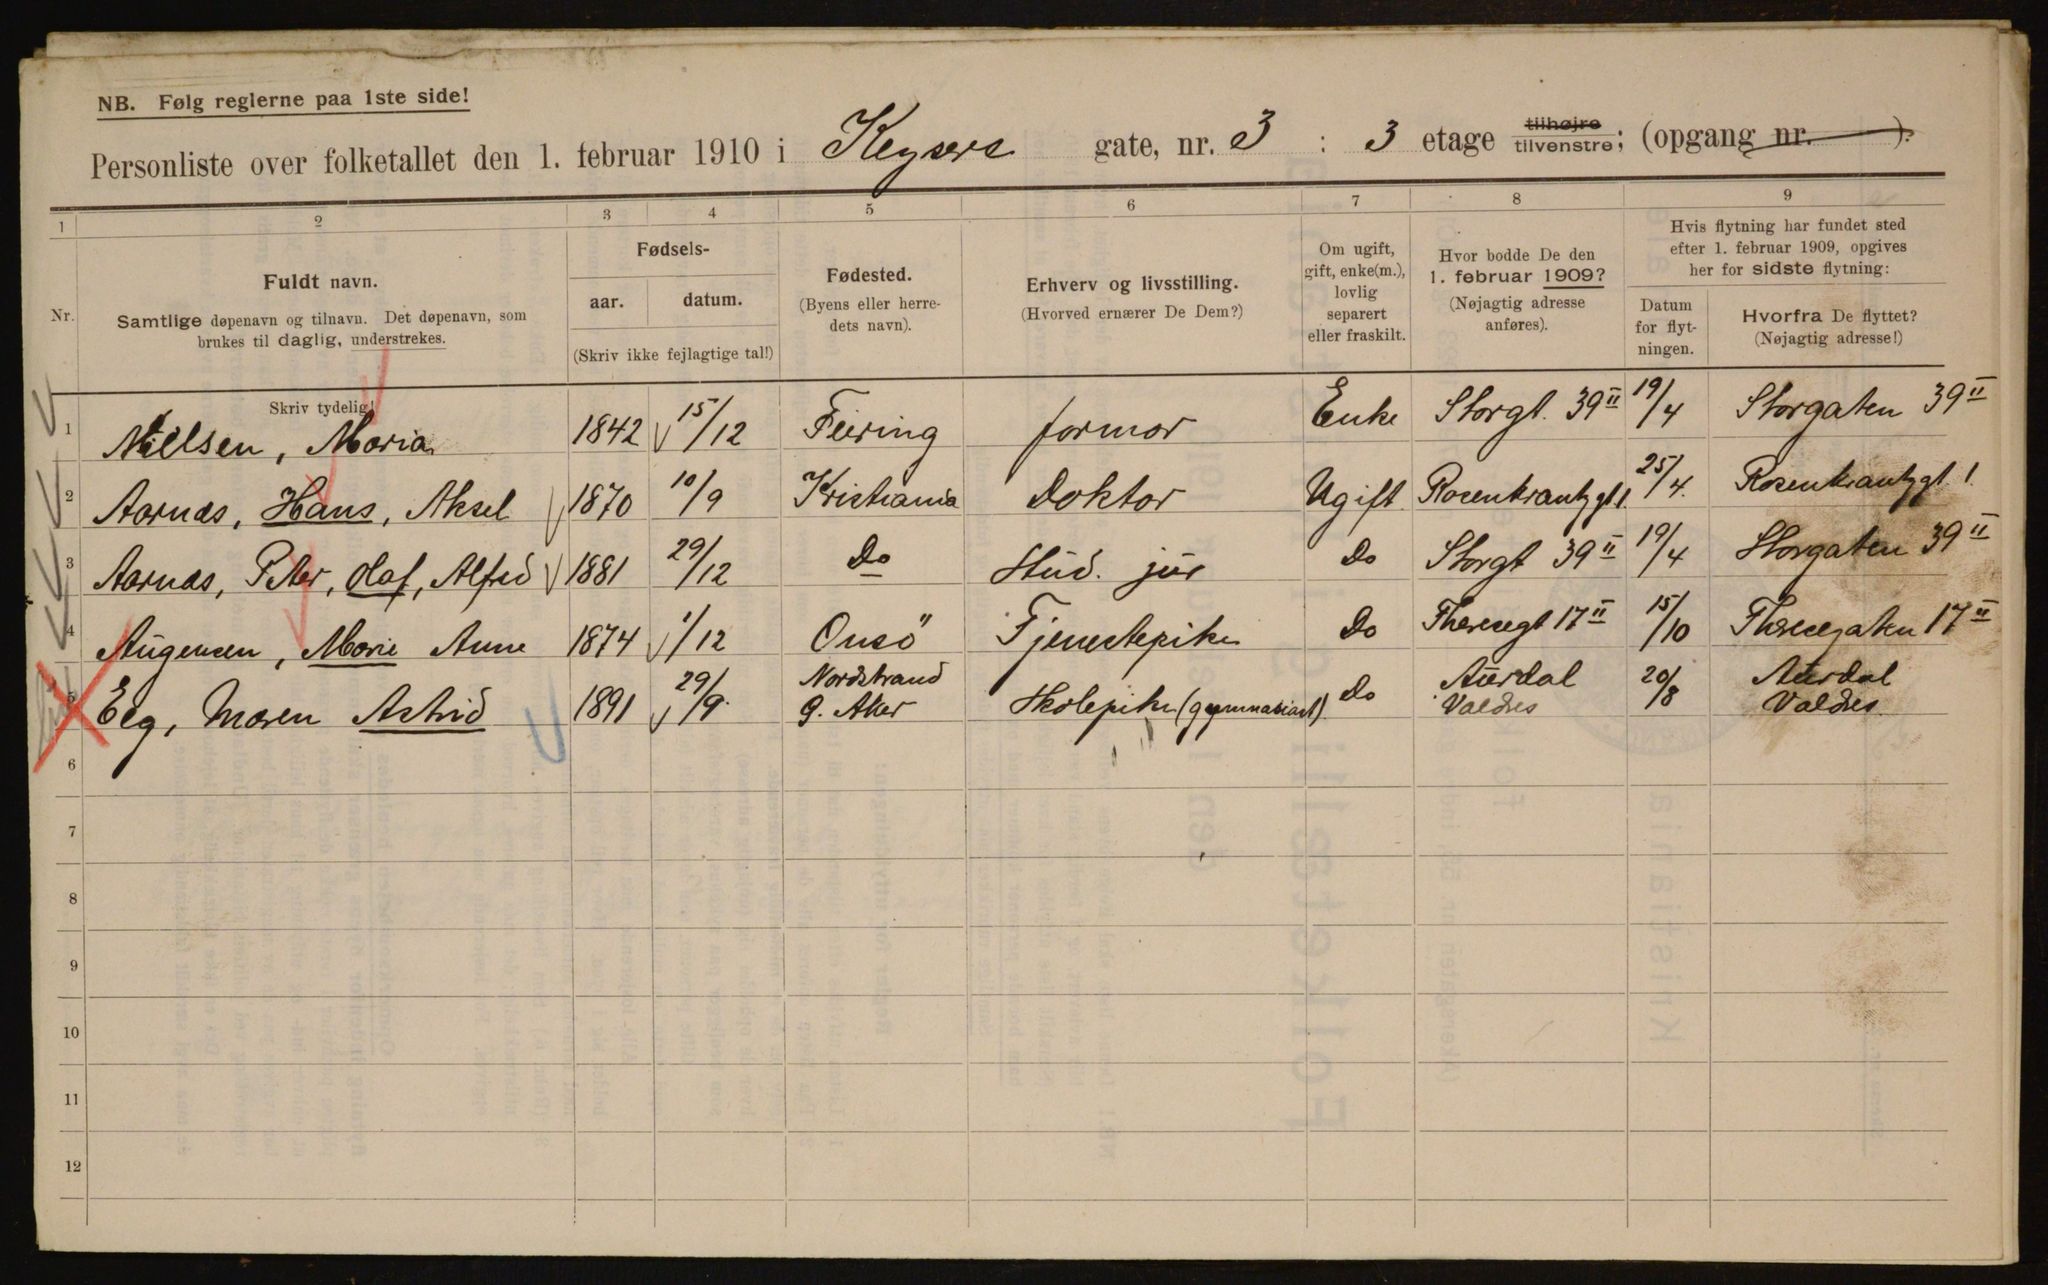 NB. Følg reglerne paa 1ste side!
Personliste over folketallet den 1. februar 1910 i Keysers gate, nr. 3 : 3 etage tilhøjre tilvenstre; (opgang nr. ).
1 2 3 4 5 6 7 8 9
Nr.
Fuldt navn.
Samtlige døpenavn og tilnavn. Det døpenavn, som
brukes til daglig, understrekes.
Skriv tydelig!
Fødsels-
aar. datum.
(Skriv ikke fejlagtige tal!)
Fødested.
(Byens eller herre-
dets navn).
Erhverv og livsstilling.
(Hvorved ernærer De Dem?)
Om ugift,
gift, enke(m.),
lovlig
separert
eller fraskilt.
Hvor bodde De den
1. februar 1909?
(Nøjagtig adresse
anføres).
Hvis flytning har fundet sted
efter 1. februar 1909, opgives
her for sidste flytning:
Datum
for flyt-
ningen.
Hvorfra De flyttet?
(Nøjagtig adresse!)
1 Nielsen, Maria 1842 15/12 Feiring formor Enke Storgt. 39 II 19/4 Storgaten 39 II
2 Aarnæs, Hans, Aksel 1870 10/9 Kristiania Doktor Ugift Rosenkrantzgt 1. 25/4. Rosenkrantzgt. 1.
3 Aarnæs, Peter, Olaf, Alfred 1881 29/12 Do Stud. jur Do Storgt 39 II 19/4 Storgaten 39 II
4 Augensen, Marie Anne 1874 1/12 Onsö Tjenestepike Do Theresegt 17 II 15/10 Theresegaten 17 II
5 Eeg, Maren Astrid 1891 29/9. Nordstrand Ø. Aker Skolepike (gymnasiast) Do Aurdal Valdres 20/8 Aurdal Valdres.
6
7
8
9
10
11
12